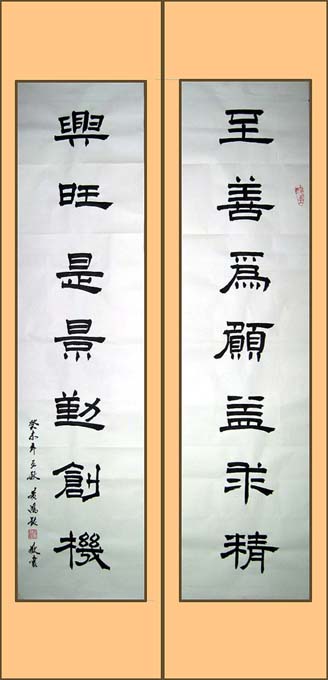 至善爲願益求精
興旺是景勤創機
癸未年
敬書